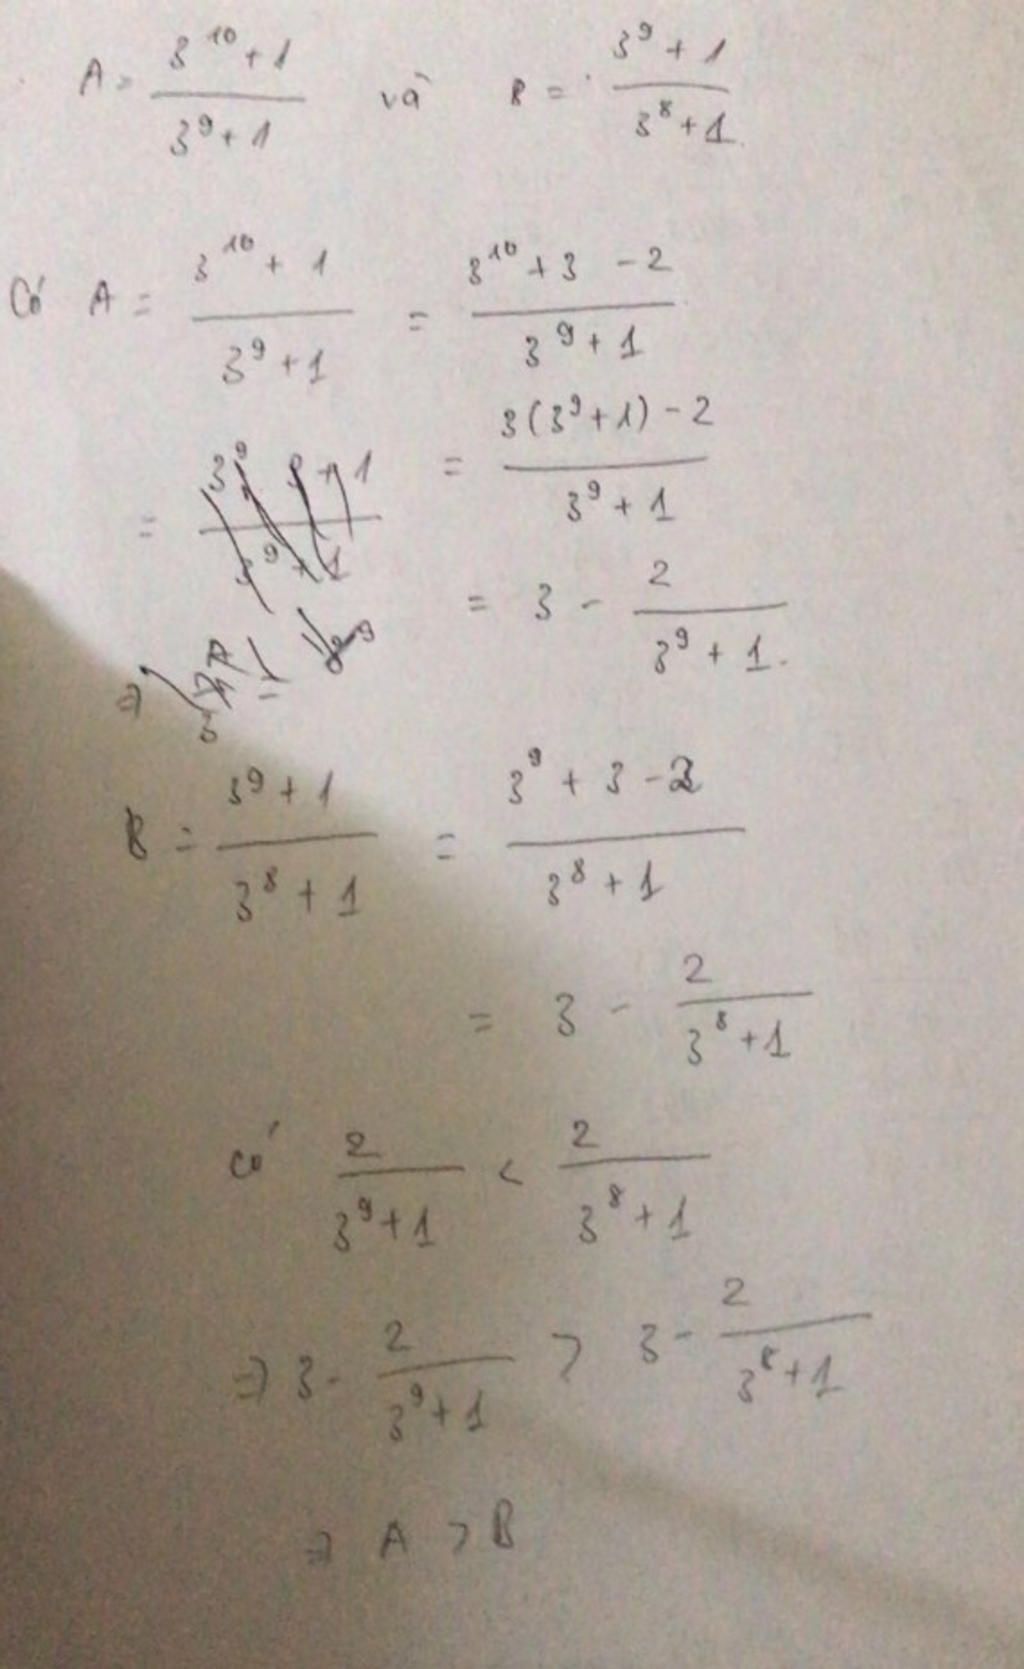 A = (3^10 + 1)/(3^9 + 1) và B = (3^9 + 1)/(3^8 + 1)
Có A = (3^10 + 1)/(3^9 + 1) = (3^10 + 3 - 2)/(3^9 + 1)
= (3(3^9 + 1) - 2)/(3^9 + 1)
= 3 - 2/(3^9 + 1).
B = (3^9 + 1)/(3^8 + 1) = (3^9 + 3 - 2)/(3^8 + 1)
= 3 - 2/(3^8 + 1)
có 2/(3^9 + 1) < 2/(3^8 + 1)
=> 3 - 2/(3^9 + 1) > 3 - 2/(3^8 + 1)
=> A > B